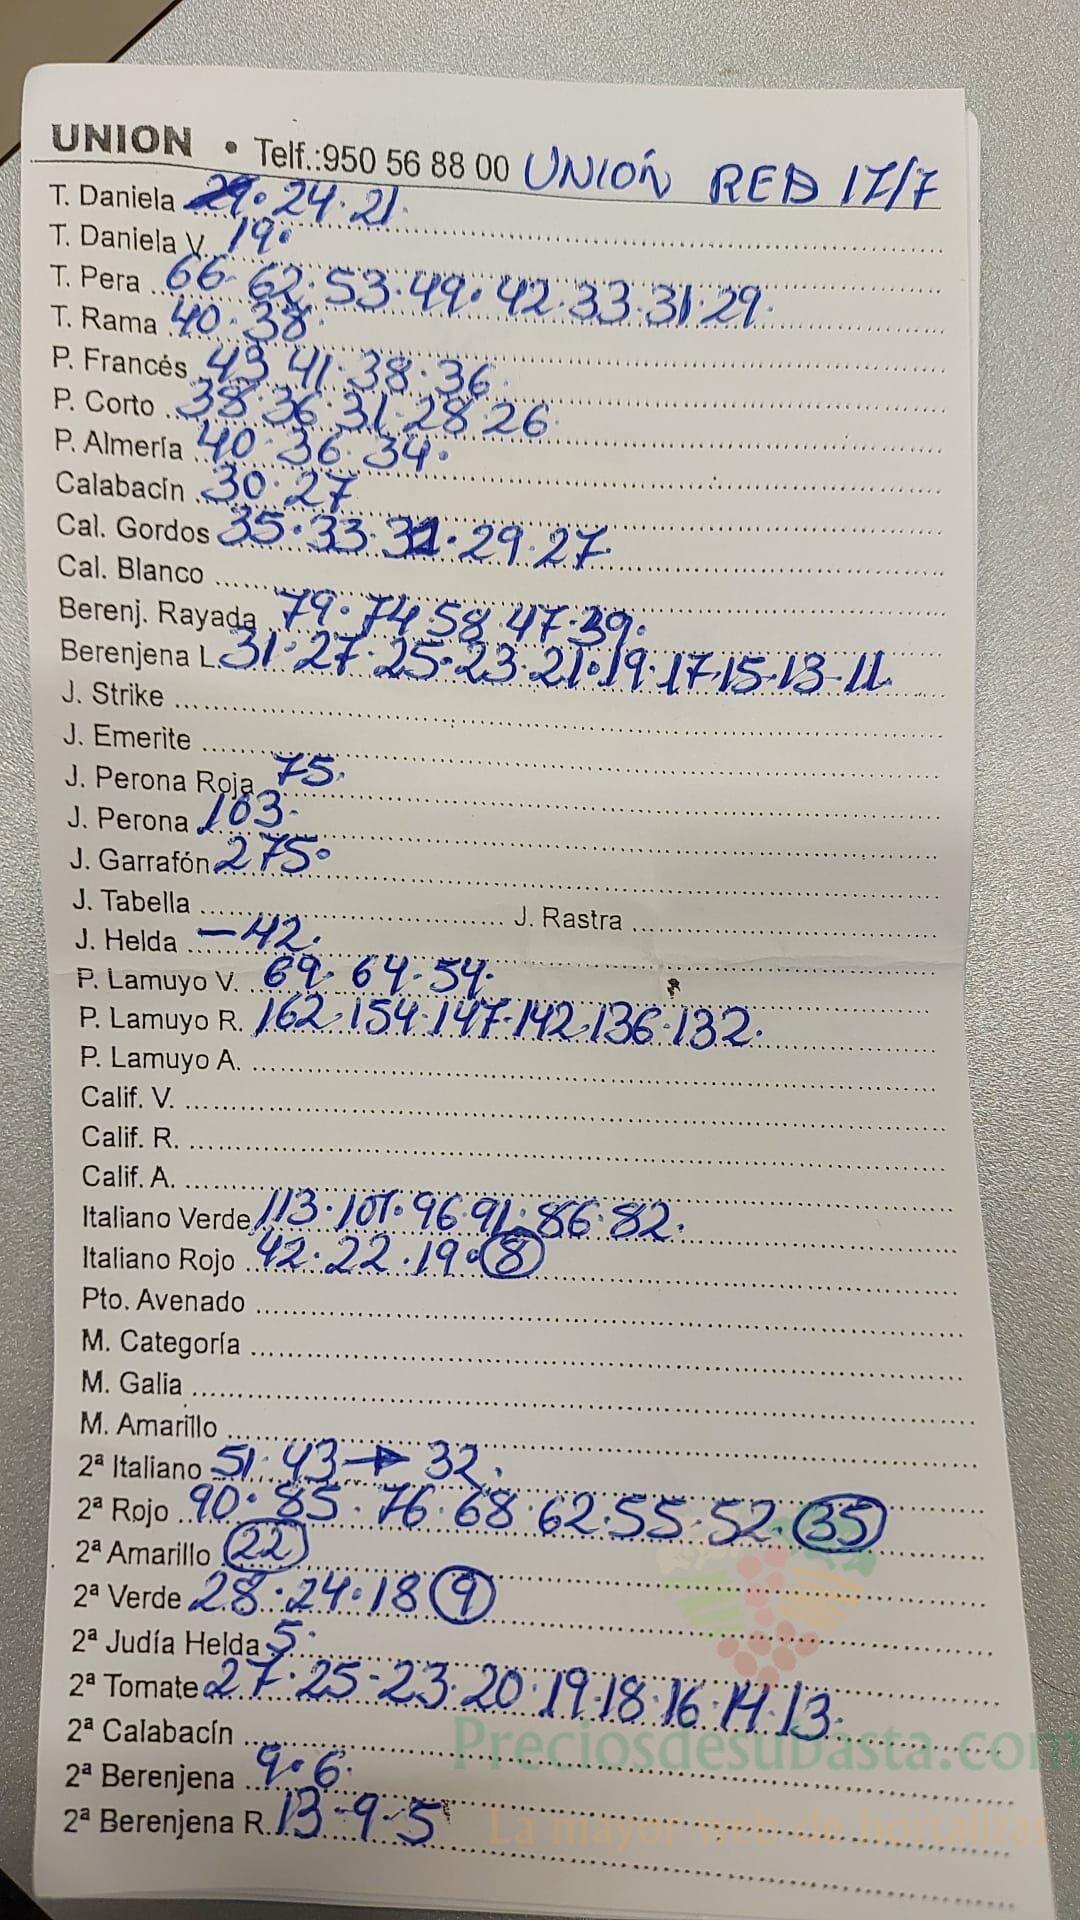 UNION • Telf.:950 56 88 00 UNIÓN RED 17/7
T. Daniela 29. 24. 21.
T. Daniela V. 19.
T. Pera 66. 62. 53. 49. 42. 33. 31. 29.
T. Rama 40. 38.
P. Francés 43 41. 38. 36.
P. Corto 38. 36. 31. 28 26
P. Almería 40. 36. 34.
Calabacín 30. 27
Cal. Gordos 35. 33. 31. 29. 27.
Cal. Blanco
Berenj. Rayada 79. 74. 58 47. 39.
Berenjena L. 31. 27. 25. 23. 21. 19. 17. 15. 13. 11.
J. Strike
J. Emerite
J. Perona Roja 75.
J. Perona 103.
J. Garrafón 275.
J. Tabella J. Rastra
J. Helda — 42.
P. Lamuyo V. 69. 64. 54.
P. Lamuyo R. 162. 154. 147. 142. 136. 132.
P. Lamuyo A.
Calif. V.
Calif. R.
Calif. A.
Italiano Verde 113. 101. 96. 91. 86. 82.
Italiano Rojo 42. 22. 19. 8
Pto. Avenado
M. Categoría
M. Galia
M. Amarillo
2ª Italiano 51. 43 → 32.
2ª Rojo 90. 85. 76. 68. 62. 55. 52. 35
2ª Amarillo 22
2ª Verde 28. 24. 18 9
2ª Judía Helda 5.
2ª Tomate 27. 25 - 23. 20. 19. 18. 16. 14. 13.
2ª Calabacín
2ª Berenjena 9. 6.
2ª Berenjena R. 13 - 9 - 5
Preciosdesubasta.com
La mayor web de hortalizas